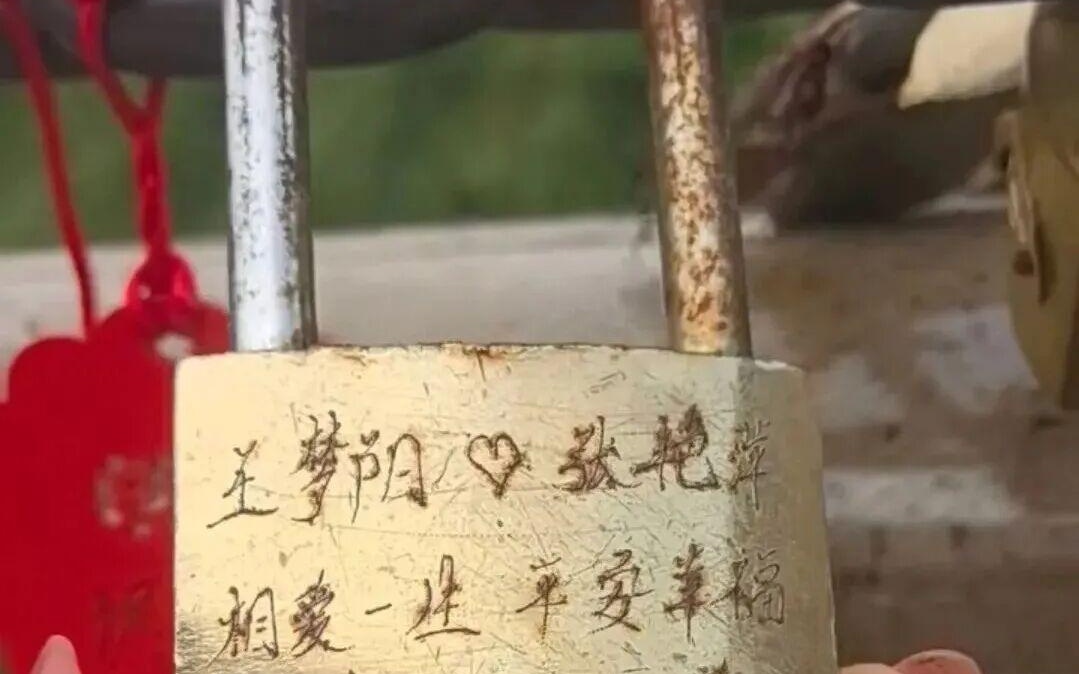 王梦阳♡张艳萍
相爱一生 平安幸福